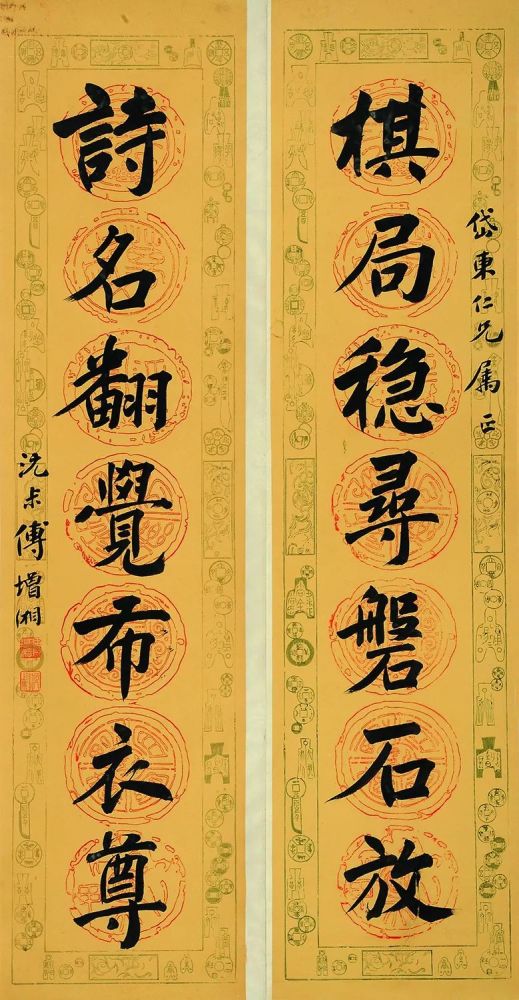 棋局稳尋磐石放
岱東仁兄属正
詩名翻覺布衣尊
沅未傅增湘